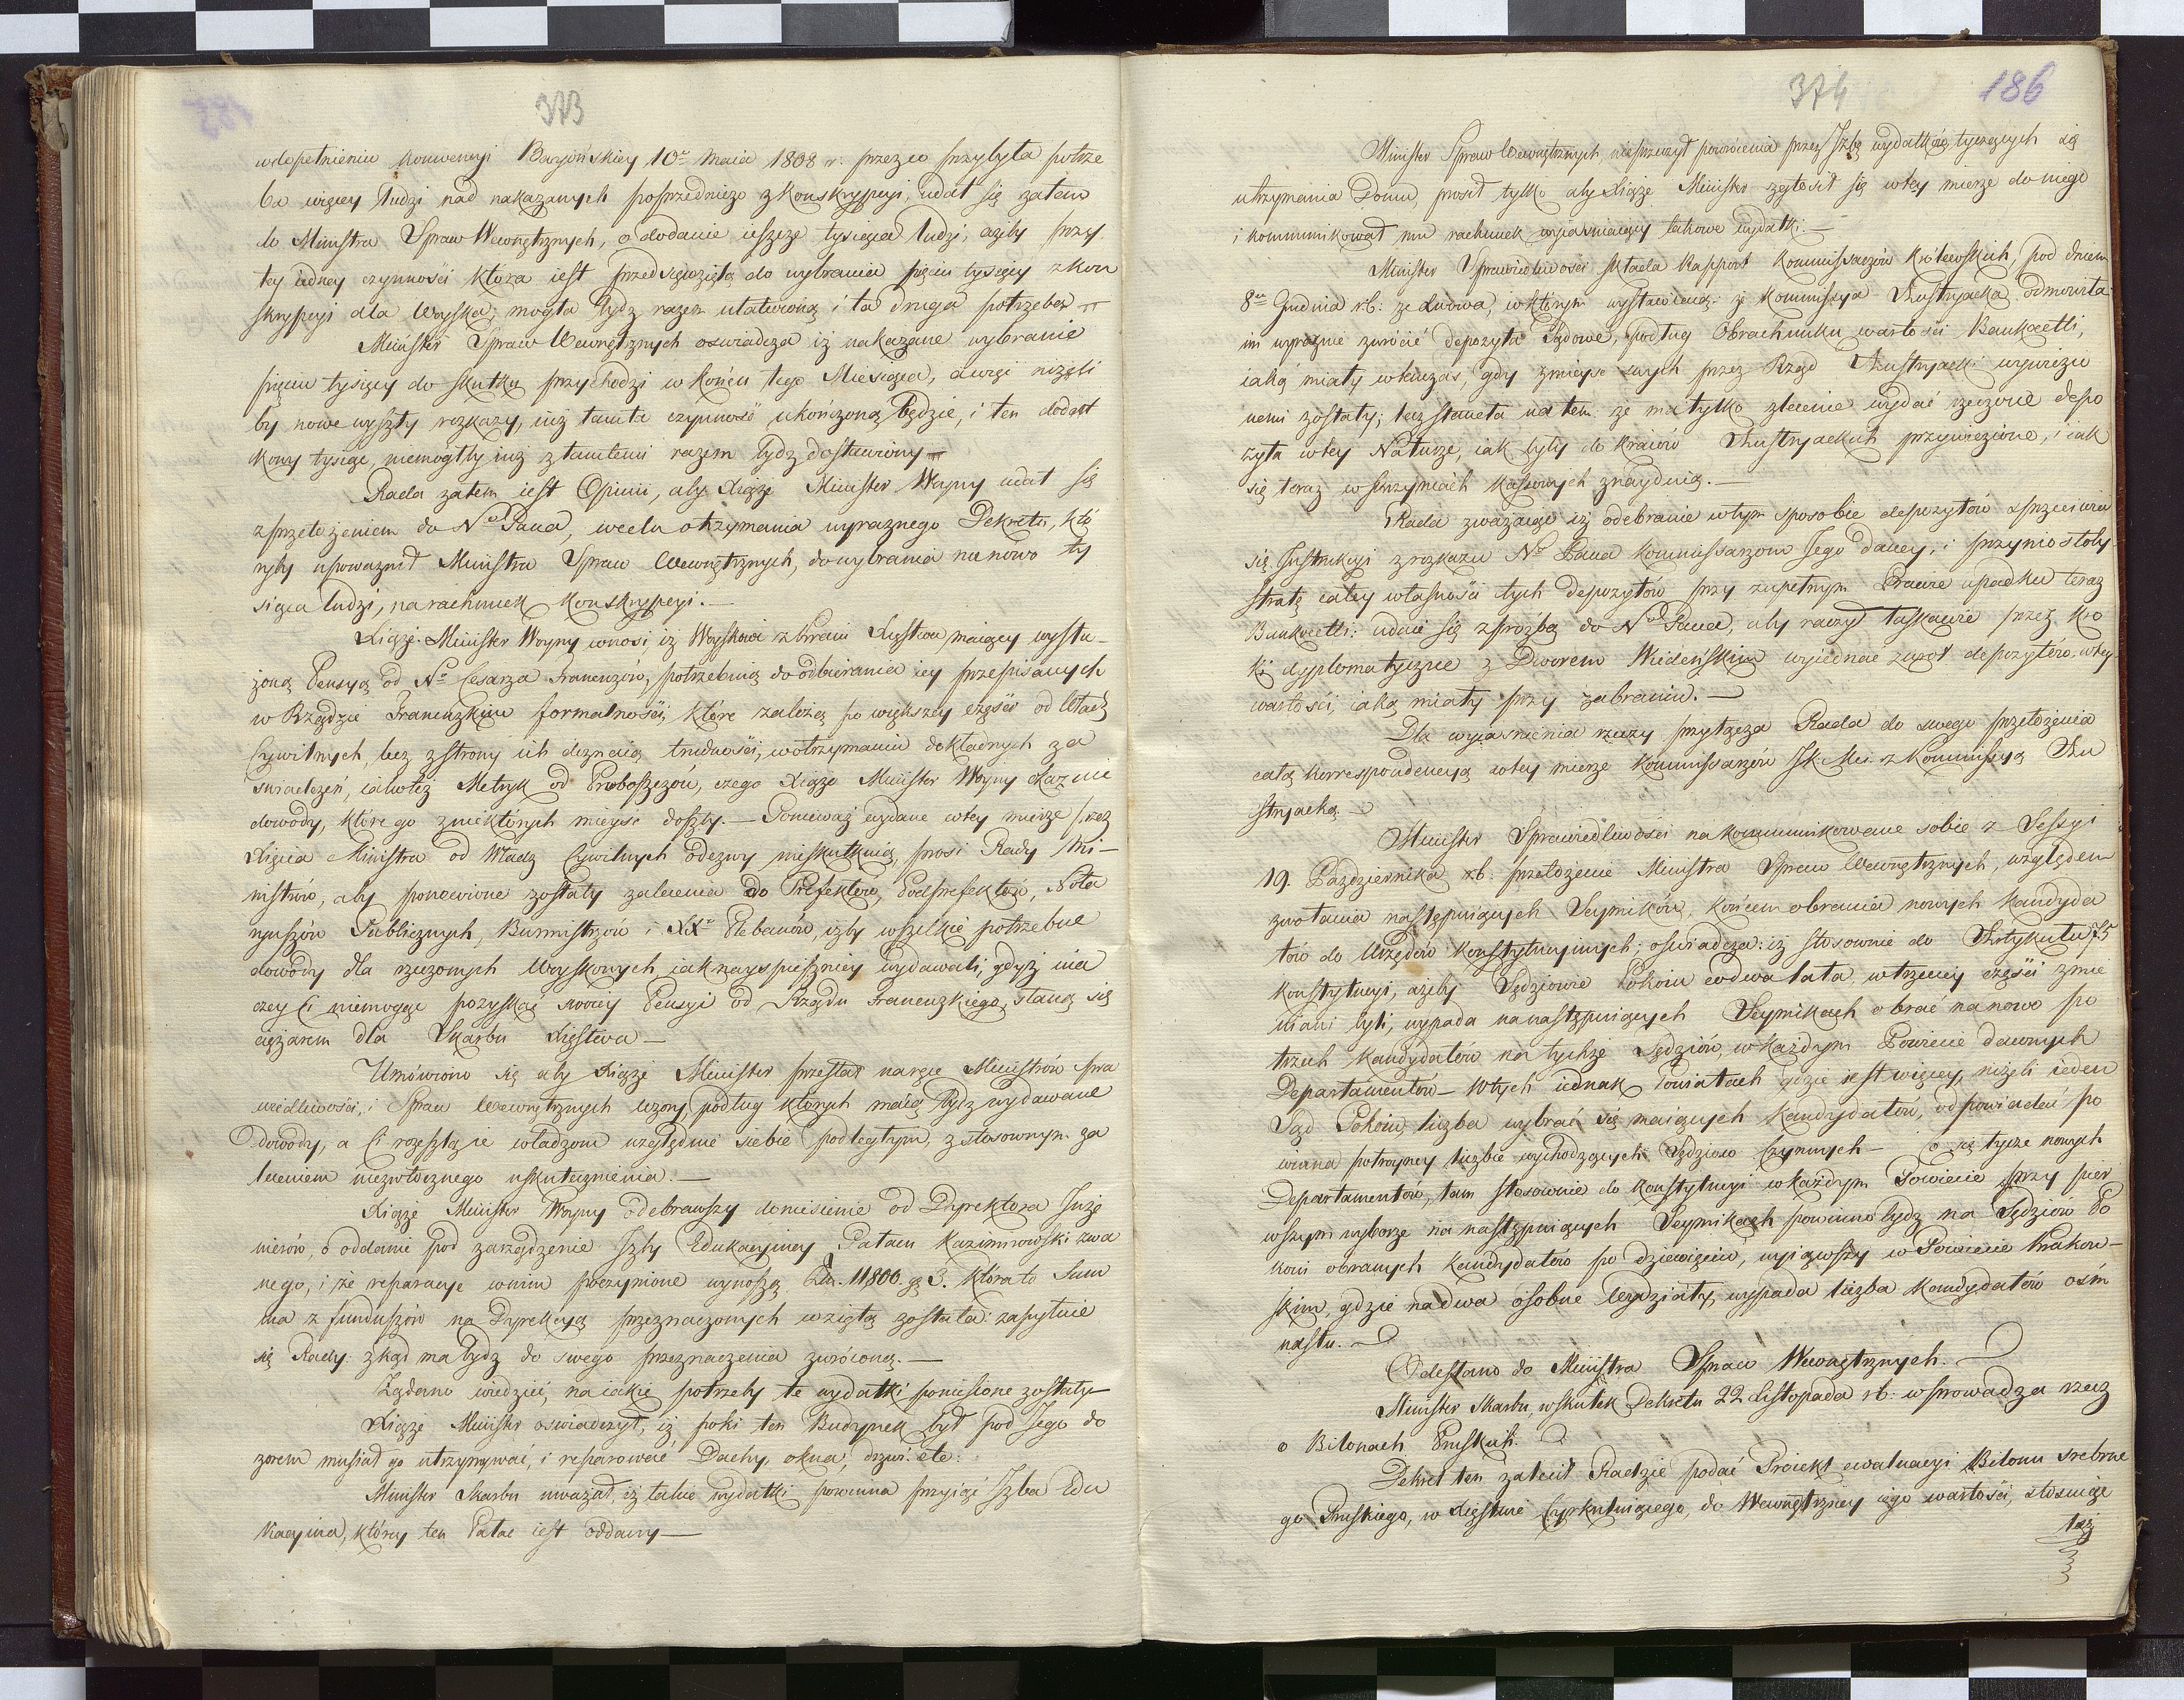 373
wdopełnieniu konwencyi Bayońskiey 10º Maia 1808 r. przezco przybyła potrze
ba więcey ludzi nad nakazanych poprzedniczo z konskrypcyi, udał się zatem
do Ministra Spraw Wewnętrznych, o dodanie ieszcze tysiąca ludzi, ażeby przy
tey iedney czynności która iest przedsięwziętą do wybrania pięciu tysięcy z kon
skrypcyi dla Woyska, mogła bydz razem ułatwioną i ta druga potrzeba
Minister Spraw Wewnętrznych oswiadcza iż nakazane wybranie
pięciu tysięcy do skutku przychodzi w końcu tego Miesiąca, a więc niżeli
by nowe wyszły rozkazy, iuż tamta czynność ukończoną będzie, i ten dodat
kowy tysiąc, niemógłby iuż z tamtemi razem bydz dostawiony
Rada zatem iest Opinii, aby Xiąże Minister Woyny udał się
z przełożeniem do Nº Pana, wcelu otrzymania wyraznego Dekretu, któ
ryby upoważnił Ministra Spraw Wewnętrznych, do wybrania nanowo ty
siąca ludzi, na rachunek konskrypcyi.—
Xiąże Minister Woyny wnosi iż Woyskowi z braci Xięstwa maiący wysłu-
żoną Pensyą od Nº Cesarza Francuzów, potrzebuią do odbierania iey przepisanych
w Rządzie Francuzkim formalności, które zależą po większey części od Władz
Cywilnych, lecz z strony ich doznaią trudności, w otrzymaniu dokładnych za
swiadczeń, iakoteż Metryk od Proboszczów, czego Xiąże Minister Woyny okazuie
dowody, które go z niektórych mieysc doszły.— Ponieważ wydane wtey mierze przez
Xięcia Ministra od Władz Cywilnych odezwy nieskutkuią, prosi Rady Mi-
nistrów, aby ponowione zostały zalecenia do Prefektów, Podprefektów, Nota
ryuszów Publicznych, Burmistrzów i XXº Plebanów, iżby wszelkie potrzebne
dowody dla rzeczonych Woyskowych iak nayspieszniey wydawali, gdyż ina
czey Ci niemogąc pozyskać swoiey Pensyi od Rządu Francuzkiego, staną się
ciężarem dla Skarbu Xięstwa—
Umówiono się aby Xiąże Minister przesłał na ręce Ministrów Spra
wiedliwości, i Spraw Wewnętrznych wzory, podług których maią bydz wydawane
dowody, a Ci rozeszlą ie władzom względnie siebie podległym, z stosownym za
leceniem niezwłocznego uskutecznienia.—
Xiąże Minister Woyny odebrawszy doniesienie od Dyrektora Inże
nierów, o oddanie pod zarządzenie Izby Edukacyiney Pałacu Kazimirowski zwa
nego, i że reparacye wnim poczynione wynoszą Zł. 11800. gr 3. która to Sum
ma z funduszów na Dyrekcyą przeznaczonych wziętą została: zapytuie
się Rady: zkąd ma bydz do swego przeznaczenia zwróconą.—
Żądano wiedzieć, na iakie potrzeby te wydatki poniesione zostały—
Xiąże Minister oświadczył, iż póki ten Budynek był pod Jego do
zorem musiał go utrzymywać, i reparować Dachy, okna, drzwi etc:
Minister Skarbu uważał, iż takie wydatki powinna przyiąć Izba Edu
kacyina, którey ten Pałac iest oddany—
374 186
Minister Spraw Wewnętrznych nieprzeczył powrócenia przez Izbę wydatków tyczących się
utrzymania Domu, prosił tylko aby Xiąże Minister zgłosił się wtey mierze do niego
i kommunikował mu rachunek wyiaśniaiący takowe wydatki.—
Minister Sprawiedliwości składa Rapport Kommissarzów Królewskich, pod dniem
8º Grudnia r.b: ze Lwowa, w którym wystawiaią: że Kommissya Austryacka odmówiła
im wyraznie zwrócić depozyta Sądowe, podług Obrachunku wartości Bankocetli,
iaką miały wówczas, gdy z mieysc swych przez Rząd Austryacki wywiezio
nemi zostały; lecz stanęła na tem: że ma tylko zlecenie wydać rzeczone depo
zyta wtey Naturze, iak były do kraiów Austryackich przywiezione, i iak
się teraz w Skrzyniach kassowych znayduią.—
Rada zważaiąc iż odebranie wtym sposobie depozytów sprzeciwia
się Instrukcyi z rozkazu Nº Pana Kommissarzom Jego daney, i przyniosłoby
stratę całey własności tych depozytów przy zupełnym Prawie upadku teraz
Bankocetli: udaie się z prozbą do Nº Pana, aby raczył łaskawie przez kro
ki dyplomatyczne z Dworem Wiedeńskim wyiednać zwrot depozytów wtey
wartości, iaką miały przy zabraniu.—
Dla wyiaśnienia rzeczy przyłącza Rada do swego przełożenia
całą korrespondencyą wtey mierze Kommissarzów JK: Mci. z Kommissyą Au
stryacką.
Minister Sprawiedliwości na kommunikowane sobie z Sessyi
19. Pazdziernika r.b: przełożenie Ministra Spraw Wewnętrznych, względem
zwołania następuiących Seymików, końcem obrania nowych Kandyda
tów do Urzędów Konstytucyinych; oswiadcza: iż stosownie do Artykułu 75
konstytucyi, ażeby Sędziowie Pokoiu co dwa lata, w trzeciey części zmie
niani byli, wypada na następuiących Seymikach obrać na nowo po
trzech Kandydatów na tychże Sędziów, w każdym Powiecie dawnych
Departamentów— Wtych iednak Powiatach gdzie iest więcey, niżeli ieden
Sąd Pokoiu, liczba wybrać się maiących Kandydatów, odpowiadać po
winna potroyney liczbie wychodzących Sędziów Czynnych— Co się tycze nowych
Departamentów, tam stosownie do Konstytucyi w każdym Powiecie przy pier
wszym wyborze na następuiących Seymikach powinno bydz na Sędziów Po
koiu obranych Kandydatów po dziewięciu, wyiąwszy w Powiecie Krakow-
skim, gdzie na dwa osobne Wydziały, wypada liczba Kandydatów ośm
nastu.—
Odesłano do Ministra Spraw Wewnętrznych.
Minister Skarbu, wskutek Dekretu 22 Listopada r.b: wprowadza rzecz
o Bilonach Pruskich.
Dekret ten zalecił Radzie podać Proiekt ewaluacyi Bilonu srebrne
go Pruskiego, w Xięstwie Cyrkuluiącego, do Wewnętrzney iego wartości, stosuiąc